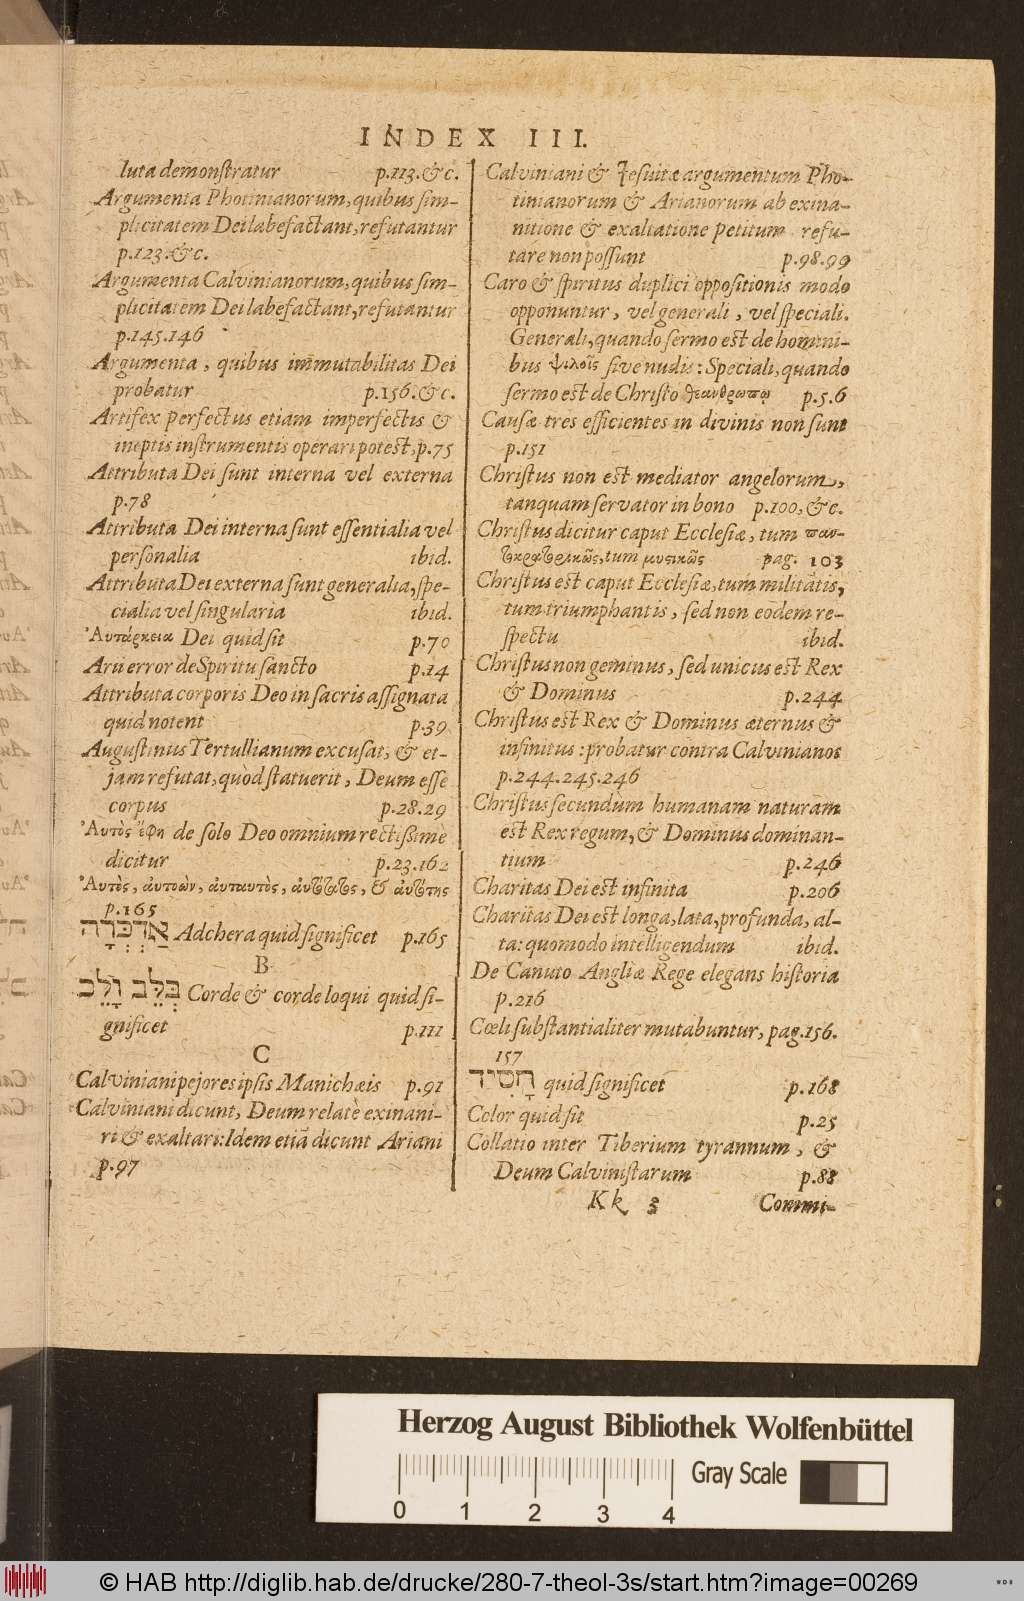 INDEX III.
luta demonstratur p.113.&c.
Argumenta Photinianorum, quibus sim-
plicitatem Dei labefactant, refutantur
p.123.&c.
Argumenta Calvinianorum, quibus sim-
plicitatem Dei labefactant, refutantur
p.145.146
Argumenta, quibus immutabilitas Dei
probatur p.156.&c.
Artifex perfectus etiam imperfectis &
ineptis instrumentis operari potest, p.75
Attributa Dei sunt interna vel externa
p.78
Attributa Dei interna sunt essentialia vel
personalia ibid.
Attributa Dei externa sunt generalia, spe-
cialia vel singularia ibid.
Αὐτάρκεια Dei quid sit p.70
Arii error de Spiritu sancto p.14
Attributa corporis Deo in sacris assignata
quid notent p.39
Augustinus Tertullianum excusat, & et-
jam refutat, quòd statuerit, Deum esse
corpus p.28.29
Αὐτὸς ἔφη de solo Deo omnium rectissimè
dicitur p.23.162
Αὐτὸς, αὐτοὼν, αὐταυτὸς, &
p.165
אַדְכְּרָה Adchera quid significet p.165
B
בְּלֵב וָלֵב Corde & corde loqui quid si-
gnificet p.111
C
Calviniani pejores ipsis Manichæis p.91
Calviniani dicunt, Deum relatè exinani-
ri & exaltari: Idem etiã dicunt Ariani
p.97
Calviniani & Jesuitæ argumentum Pho-
tinianorum & Arianorum ab exina-
nitione & exaltatione petitum refu-
tare non possunt p.98.99
Caro & spiritus duplici oppositionis modo
opponuntur, vel generali, vel speciali.
Generali, quando sermo est de homini-
bus ψιλοῖς sive nudis: Speciali, quando
sermo est de Christo θεανθρώπῳ p.5.6
Causæ tres efficientes in divinis non sunt
p.151
Christus non est mediator angelorum,
tanquam servator in bono p.100, &c.
Christus dicitur caput Ecclesiæ, tum παν-
τοκρατορικῶς, tum μυστικῶς pag. 103
Christus est caput Ecclesiæ, tum militãtis,
tum triumphantis, sed non eodem re-
spectu ibid.
Christus non geminus, sed unicus est Rex
& Dominus p.244
Christus est Rex & Dominus æternus &
infinitus: probatur contra Calvinianos
p.244.245.246
Christus secundùm humanam naturam
est Rex regum, & Dominus dominan-
tium p.246
Charitas Dei est infinita p.206
Charitas Dei est longa, lata, profunda, al-
ta: quomodo intelligendum ibid.
De Canuto Angliæ Rege elegans historia
p.216
Cœli substantialiter mutabuntur, pag.156.
157
חָסִיד quid significet p.168
Color quid sit p.25
Collatio inter Tiberium tyrannum, &
Deum Calvinistarum p.88
Kk 3 Commi-
Herzog August Bibliothek Wolfenbüttel
Gray Scale
0 1 2 3 4
© HAB http://diglib.hab.de/drucke/280-7-theol-3s/start.htm?image=00269